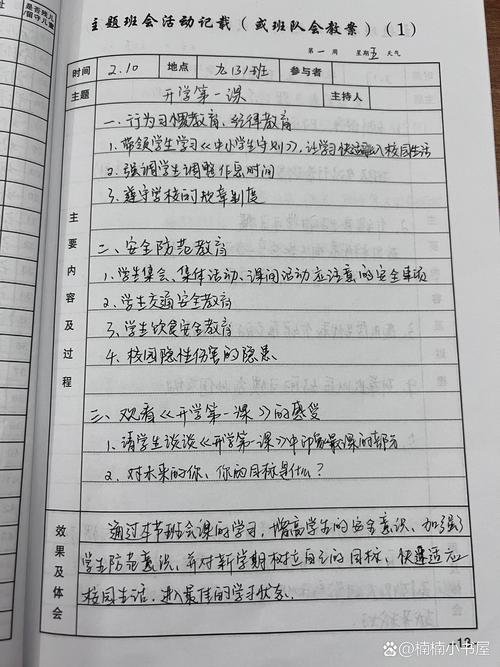 是否残儿
/留守儿童
主题班会活动记载(或班队会教案)(1)
第一周 星期五 天气
时间 2.10 地点 九(3)班 参与者
主题 开学第一课 主持人
主要内容及过程
一、行为习惯教育、纪律教育
1、带领学生学习《中小学生守则》,让学习快速融入校园生活
2、强调学生调整作息时间
3、遵守学校的规章制度
二、安全防范教育
1、学生集会、集体活动、课间活动应注意的安全事项
2、学生交通安全教育
3、学生饮食安全教育
4、校园隐性伤害的隐患
三、观看《开学第一课》的感受
1、请学生谈谈《开学第一课》中印象最深的部分
2、对未来的你,你的目标是什么?
效果及体会
通过本节班会课的学习,增高学生的安全意识、加强了
学生防范意识,并对新学期树立自己的目标,快速适应
校园生活,进入最佳的学习状态.
·13·
@楠楠小书屋